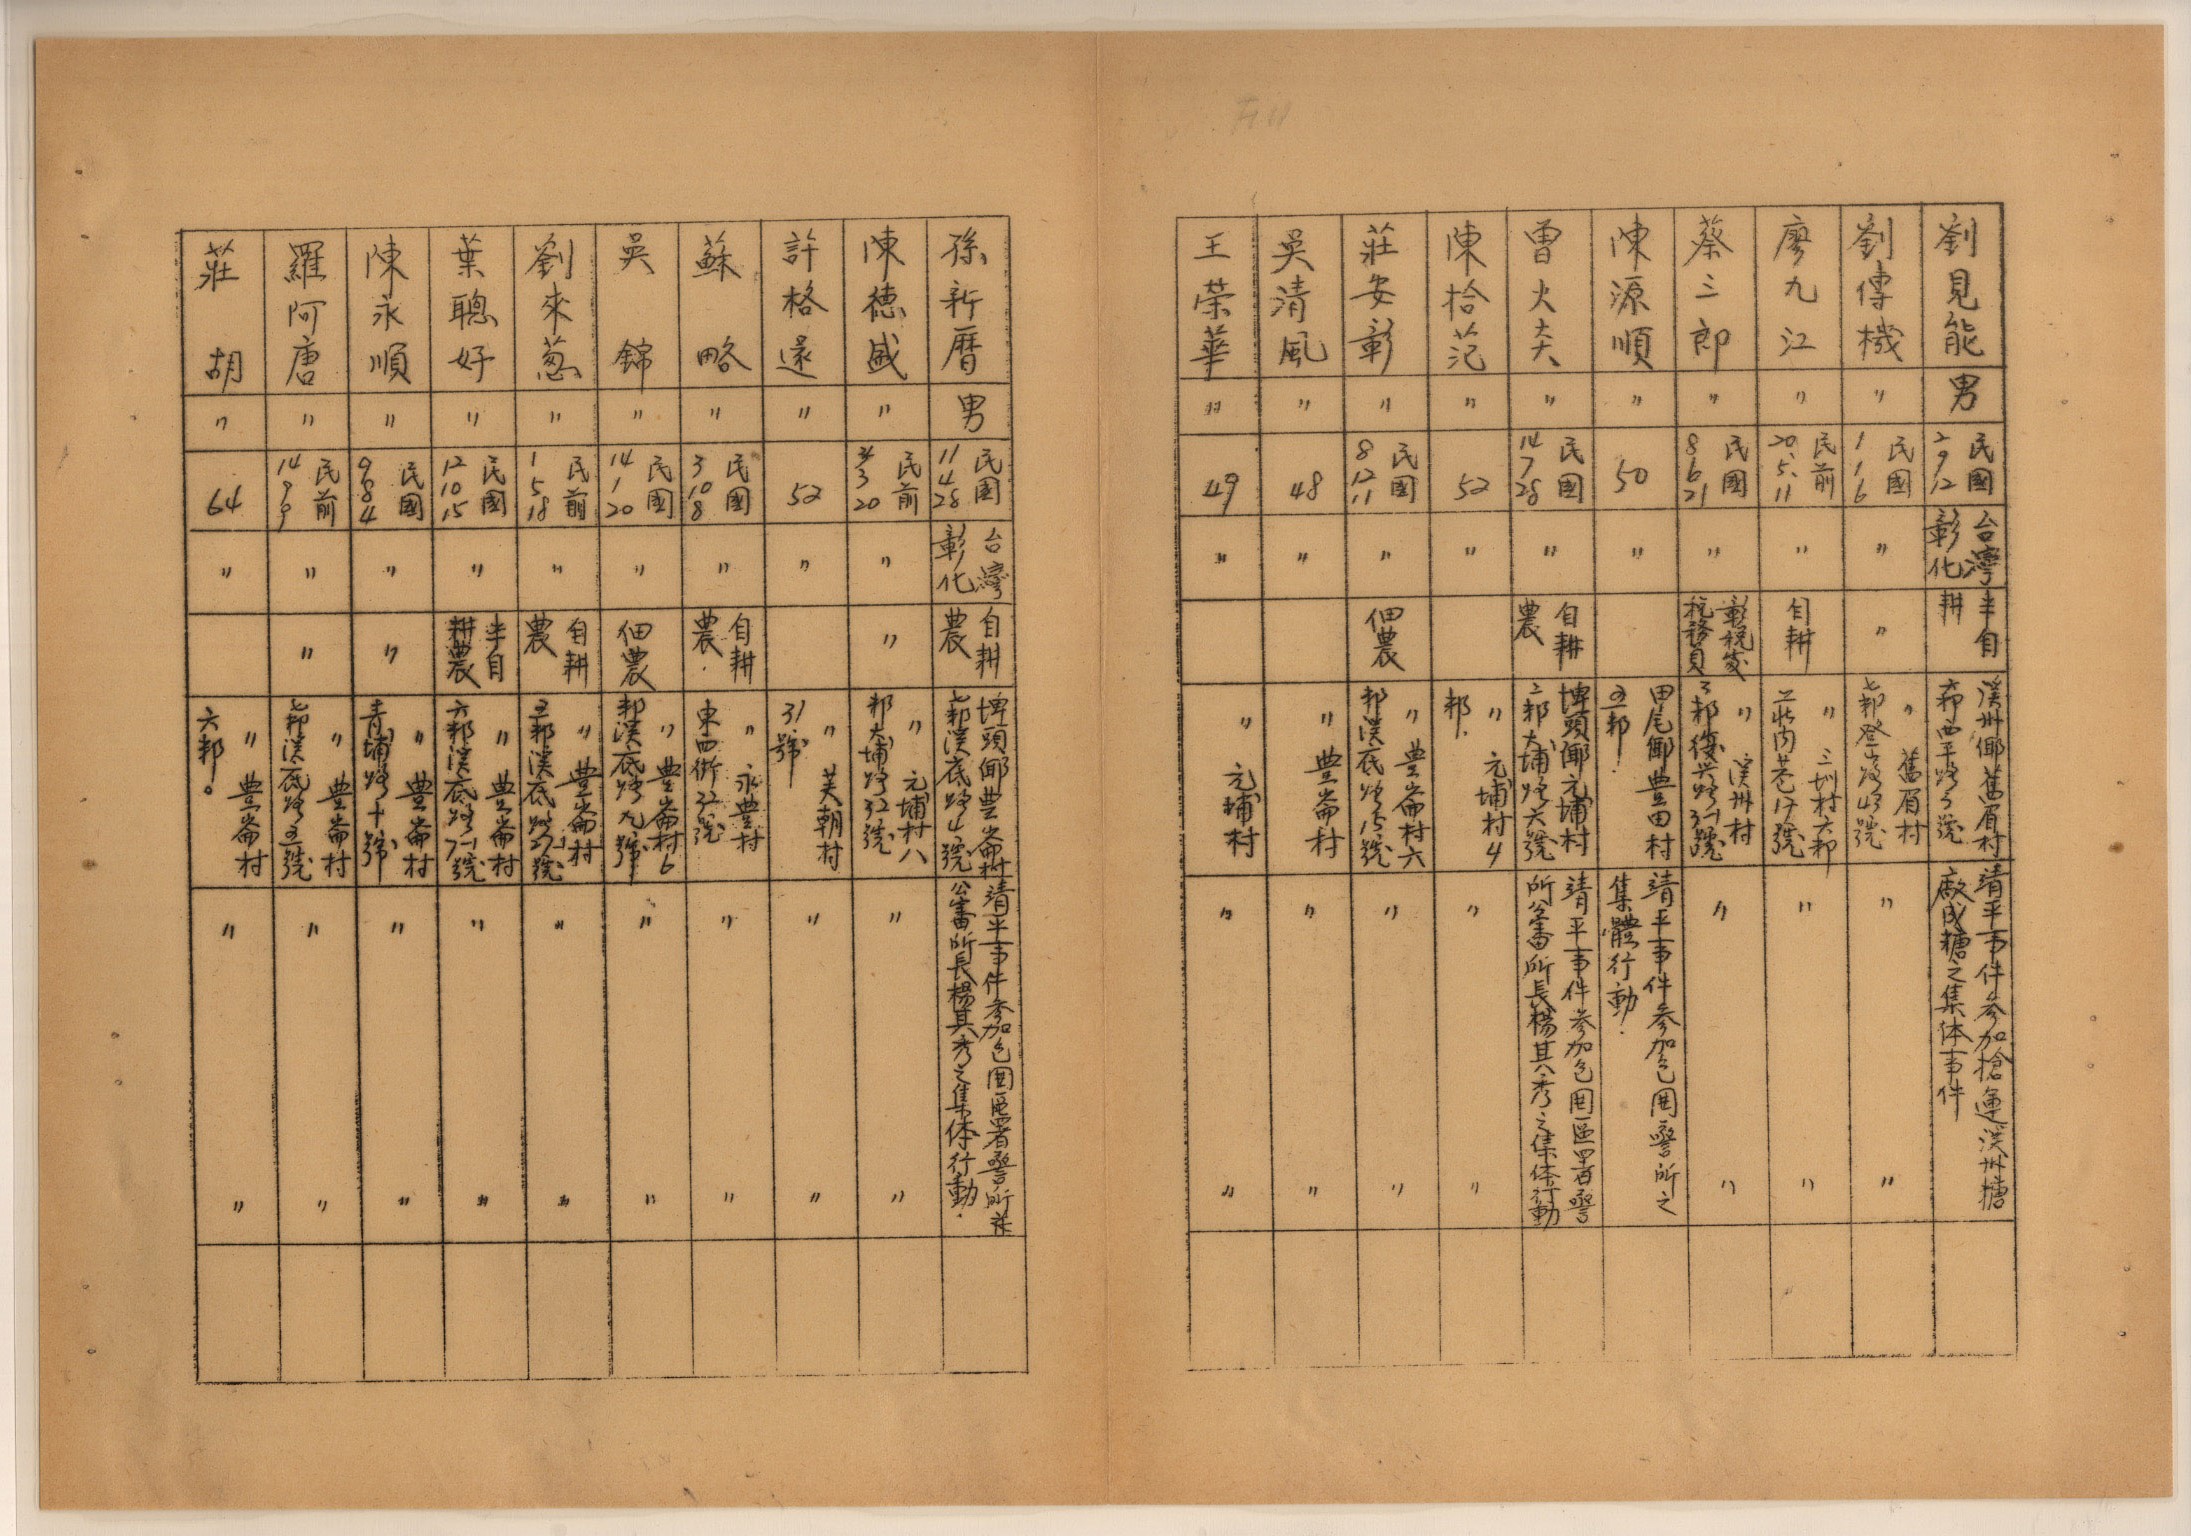 劉見能
男
民國
2 9 12
台灣
彰化
半自
耕
溪州鄉舊眉村
西平路5號
靖平事件參加搶運溪州糖
廠成糖之集体事件
劉傳機
〃
民國
1 1 6
〃
〃
〃 舊眉村
七鄰登山路43號
〃
〃
廖九江
〃
民前
20.5.11
〃
自耕
〃 三圳村六鄰
巷17號
〃
〃
蔡三郎
〃
民國
8 6 21
〃
稅務員
〃 溪州村
3鄰復兴路
〃
〃
陳源順
〃
50
〃
田尾鄉豊田村
五鄰.
靖平事件參加包囲警所之
集體行動.
曹火夫
〃
民國
14 7 28
〃
自耕
農
埤頭鄉元埔村
二鄰大埔路六號
靖平事件參加包囲區署警
所公審所長楊其秀之集体行動
陳拾范
〃
52
〃
〃 元埔村4
鄰.
〃
〃
莊安彰
〃
民國
8 12 11
〃
佃農
〃 豊崙村六
鄰溪底路15號
〃
〃
吳清風
〃
48
〃
〃 豊崙村
〃
〃
王荣華
〃
49
〃
〃 元埔村
〃
〃
孫新曆
男
民國
11 4 28
台灣
彰化
自耕
農
埤頭鄉豊崙村
七鄰溪底路42號
靖平事件參加包囲區署警所並
公審所長楊其秀之集体行動.
陳德盛
〃
民前
3 20
〃
〃
〃 元埔村八
鄰大埔路32號
〃
〃
許格遠
〃
52
〃
〃 芙朝村
31號
〃
〃
蘇略
〃
民國
3 10 8
〃
自耕
農.
〃 永豊村
東西街32號
〃
〃
吳錦
〃
民國
14 1 20
〃
佃農
〃 豊崙村6
鄰溪底路九號
〃
〃
劉來葱
〃
民前
1 5 18
〃
自耕
農
〃 豊崙村
五鄰溪底路27號
〃
〃
葉聰好
〃
民國
12 10 15
〃
半自
耕農
〃 豊崙村
六鄰溪底路71號
〃
〃
陳永順
〃
民國
9 8 4
〃
〃
〃 豊崙村
青埔路十號
〃
〃
羅阿唐
〃
民前
14 9 9
〃
〃
〃 豊崙村
七鄰溪底路五號
〃
〃
莊胡
〃
64
〃
〃 豊崙村
六鄰。
〃
〃